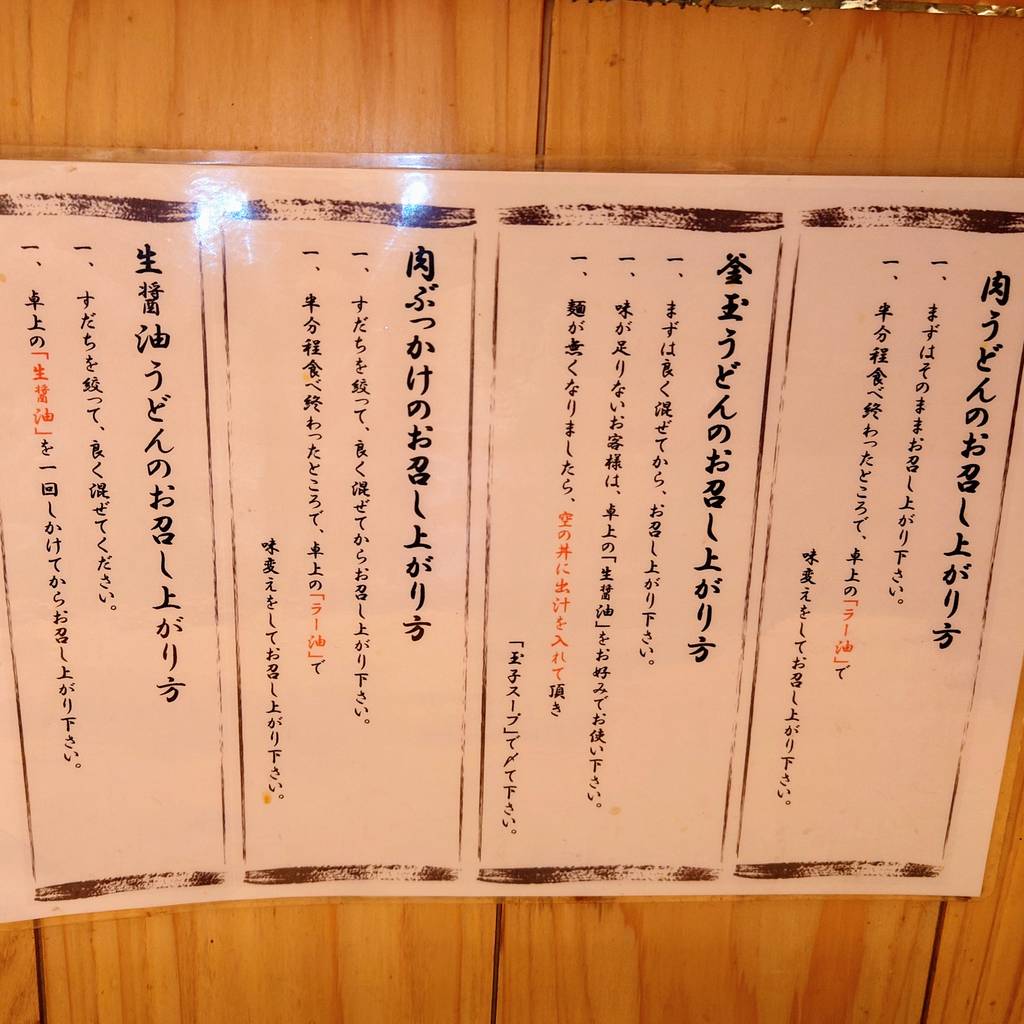 肉うどんのお召し上がり方
一、まずはそのままお召し上がり下さい。
一、半分程食べ終わったところで、卓上の「ラー油」で
味変えをしてお召し上がり下さい。
釜玉うどんのお召し上がり方
一、まずは良く混ぜてから、お召し上がり下さい。
一、味が足りないお客様は、卓上の「生醤油」をお好みでお使い下さい。
一、麺が無くなりましたら、空の丼に出汁を入れて頂き
「玉子スープ」で〆て下さい。
肉ぶっかけのお召し上がり方
一、すだちを絞って、良く混ぜてからお召し上がり下さい。
一、半分程食べ終わったところで、卓上の「ラー油」で
味変えをしてお召し上がり下さい。
生醤油うどんのお召し上がり方
一、すだちを絞って、良く混ぜてください。
一、卓上の「生醤油」を一回しかけてからお召し上がり下さい。